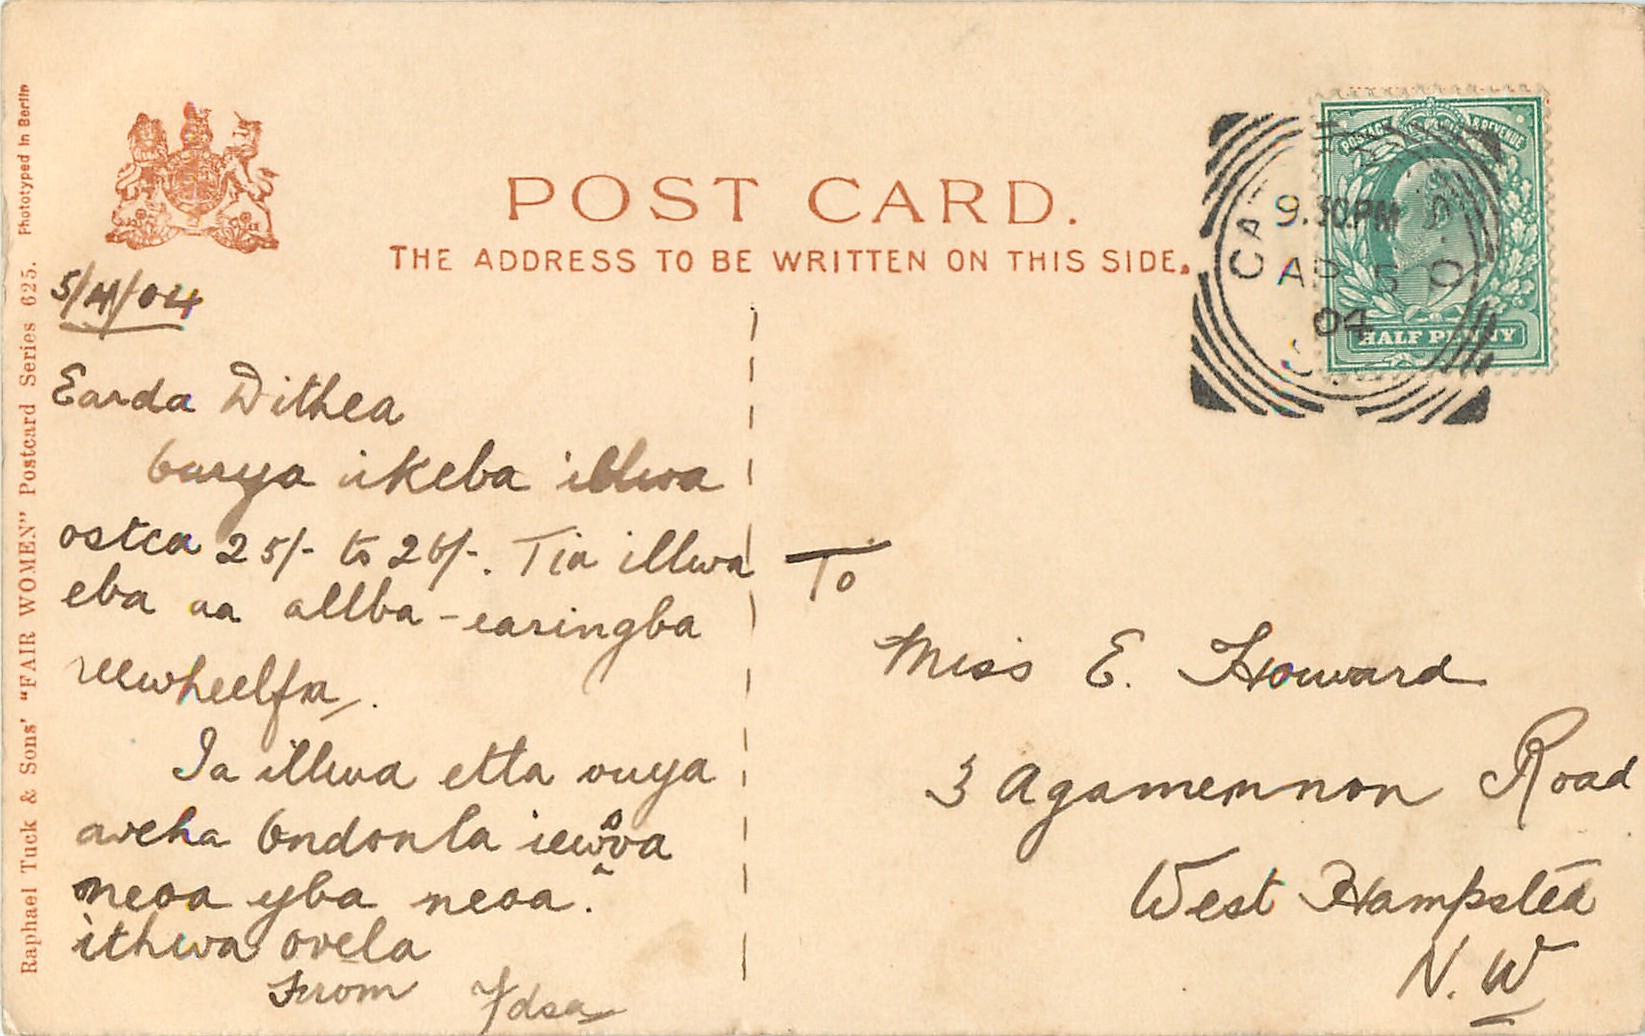 Photographed in Berlin
Raphael Tuck & Sons' "FAIR WOMEN" Postcard Series 625.
POST CARD.
THE ADDRESS TO BE WRITTEN ON THIS SIDE.
POSTAGE & REVENUE
HALF PENNY
9.30PM
AP 5
04
5/4/04
Earda Dithea
ourya ikeba illwa
ostca 25/- to 26/-. Tia illwa
eba aa allba-earingba
reewheelfa.
Ia illwa etta ouya
aveha ondonla iewva
neoa yba neoa.
ithwa ovela
From Ydsa
To
Miss E. Howard
3 Agamemnon Road
West Hampstead
N.W